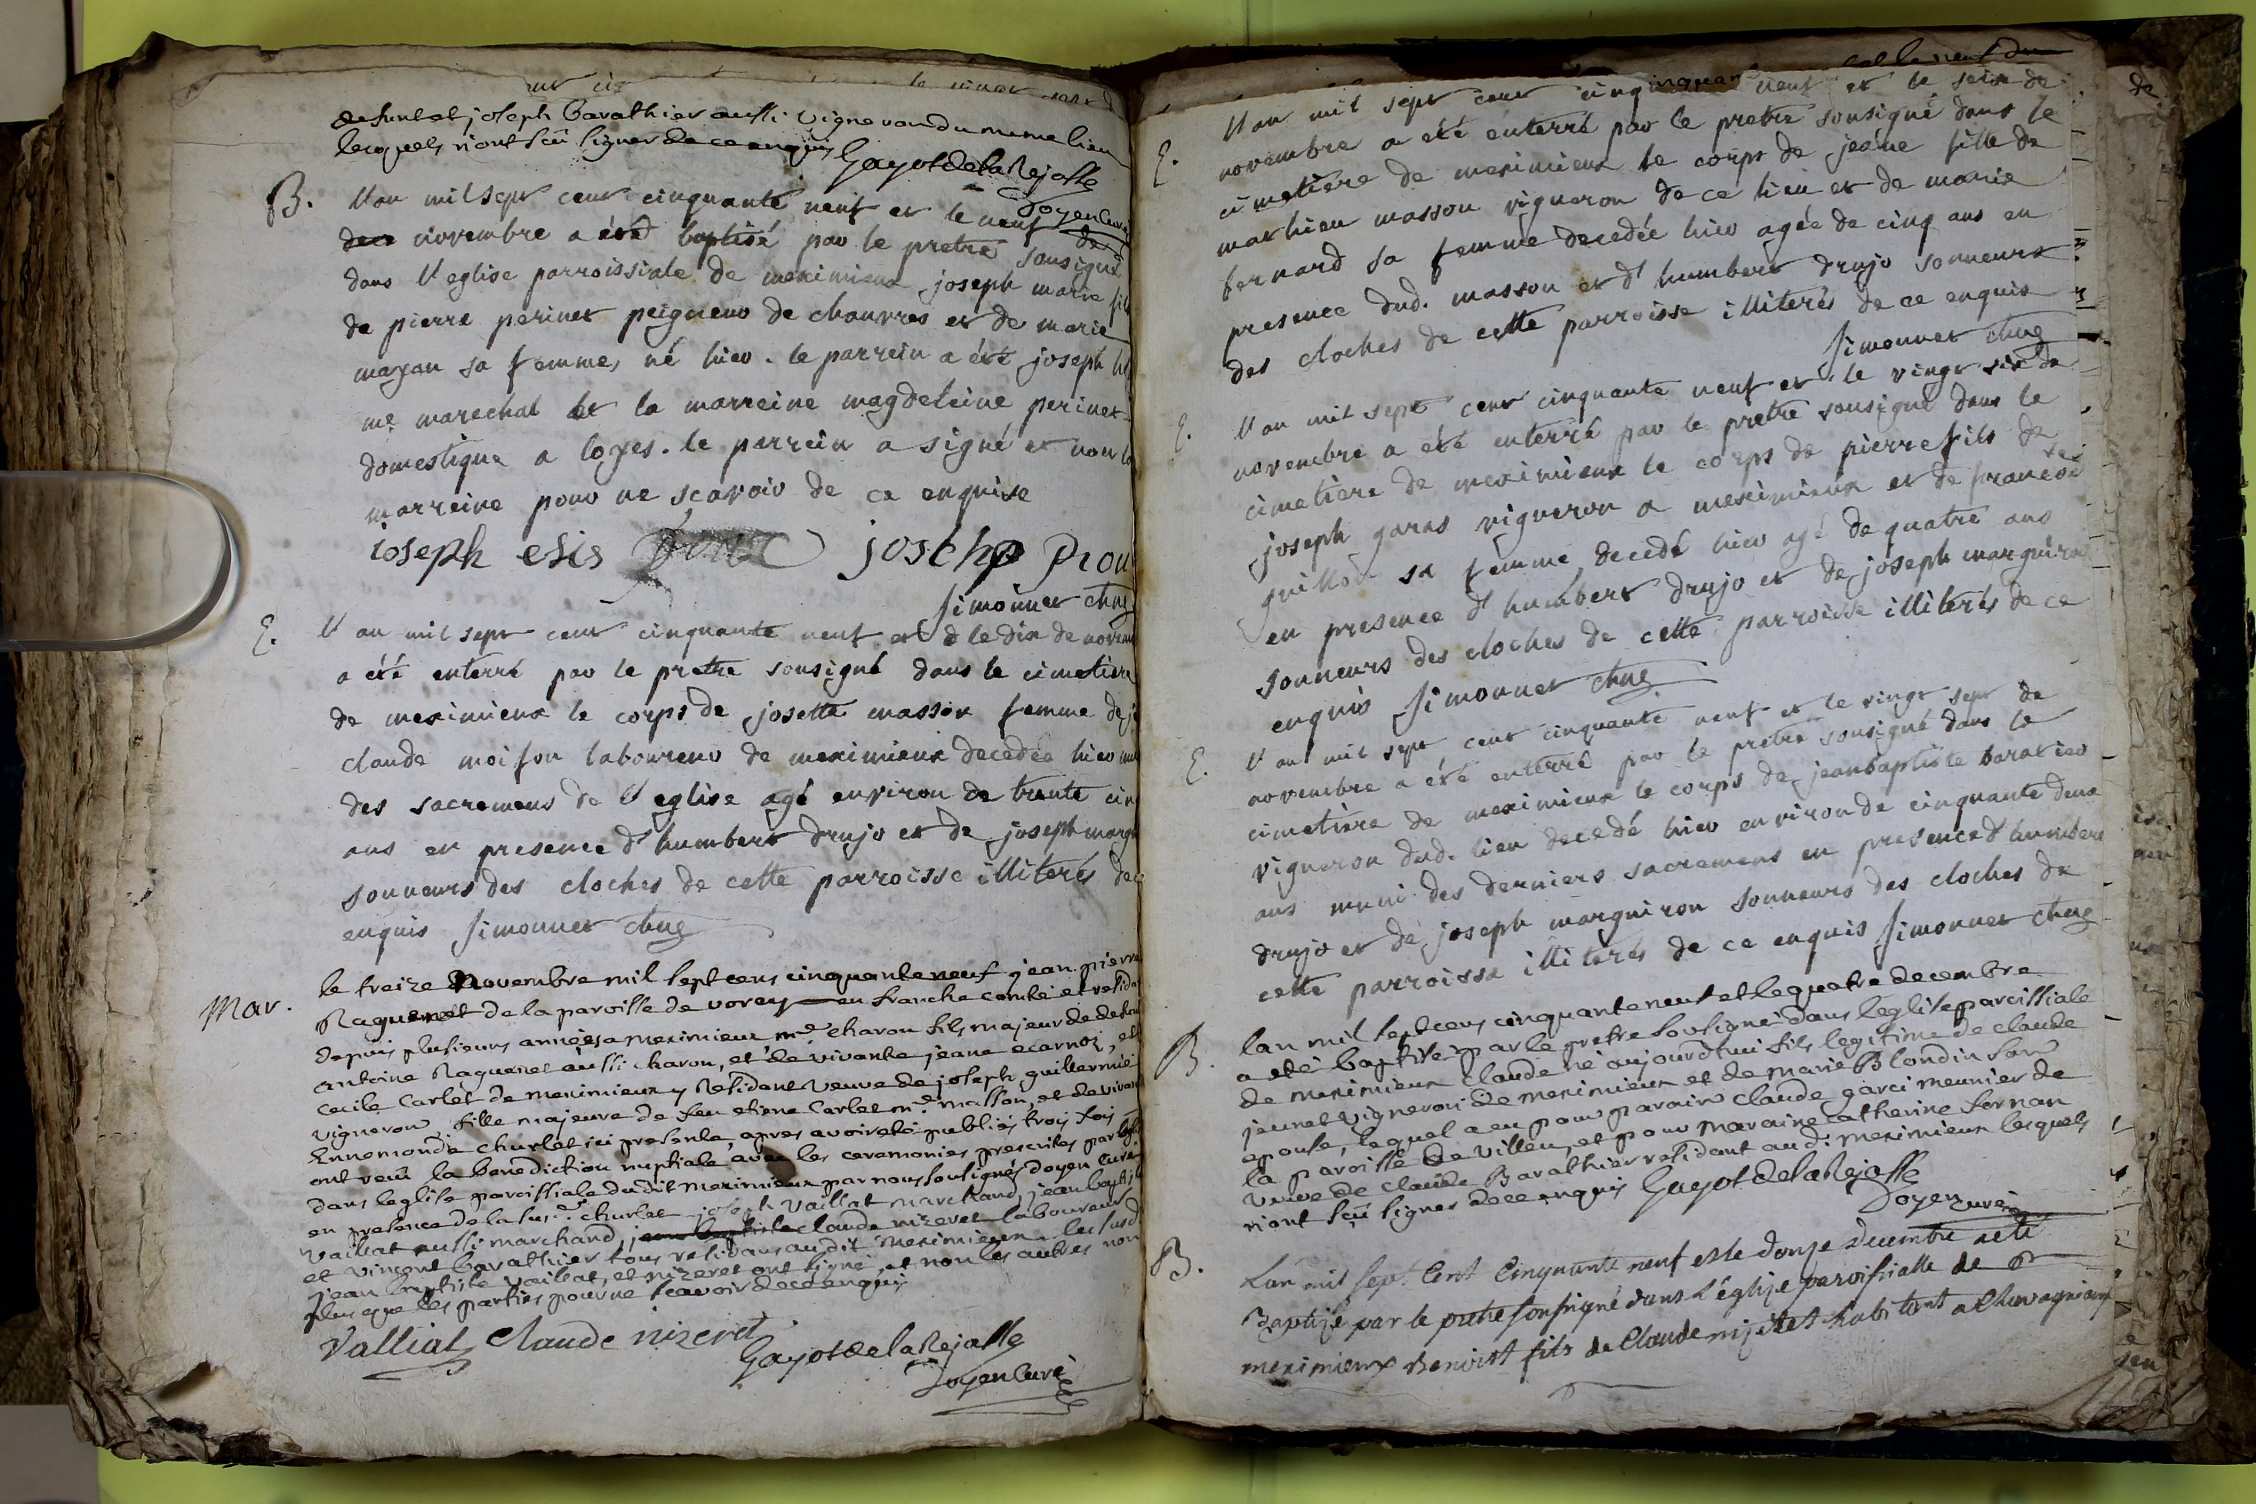 defunt et joseph Barathier aussi vigneron du meme lieu
lesquels n'ont sçu signer de ce enquis Gayot de la Rejasse
Doyen Curé
B. l'an mil sept cent cinquante neuf et le neuf de
novembre a été baptisé par le pretre sousigné
dans l'eglise parroissiale de meximieux joseph marie fils
de pierre perinet peigneur de chanvres et de marie
mayan sa femme, né hier. le parrein a été joseph
me marechal et la marreine magdeleine perinet
domestique a loyes. le parrein a signé et non la
marreine pour ne sçavoir de ce enquise
joseph
simonnet
E. l'an mil sept cent cinquante neuf et le dix de novem
a été enterré par le pretre sousigné dans le cimetiere
de meximieux le corps de josette masson femme de
claude moison laboureur de meximieux decedée hier
des sacremens de l'eglise agé environ de trente cin
ans en presence d'humbert drujo et de joseph marg
sonneurs des cloches de cette parroisse illiterés de ce
enquis simonnet
Mar. le treize Novembre mil sept cens cinquante neuf jean pierre
Raguenet de la paroisse de vorey en franche comté et resida
depuis plusieurs années a meximieux me charon fils majeur de defun
antoine Raguenet aussi charon, et de vivante jeane ecarnot, et
cecile Carlet de meximieux y Residant veuve de joseph guillermie
vigneron, fille majeure de feu etiene Carlet me masson, et de vivan
Ennemonde churlet ici presente, apres avoir eté publiés trois fois
ont reçu la benediction nuptiale avec les ceremonies prescrites par l'egl
dans leglise paroissiale dudit Meximieux par nous sousigné Doyen Curé
en presence de la susd. churlet joseph vailliat marchand, jean baptiste
vailliat aussi marchand, claude nizeret laboureur
et vincent barathier tous residans audit Meximieux. les susd.
jean baptiste vailliat, et nizeret ont signé, et non les autres non
plus que les parties pour ne scavoir de ce enquis
Valliat claude nizeret
Gayot de la Rejasse
Doyen Curé
E. l'an mil sept cent cinquante neuf et le seize de
novembre a été enterré par le pretre sousigné dans le
cimetiere de meximieux le corps de jeane fille de
mathieu masson vigneron de ce lieu et de marie
bernard sa femme decedée hier agée de cinq ans en
presence dud. masson et d'humbert drujo sonneurs
des cloches de cette parroisse illiterés de ce enquis
simonnet
E. l'an mil sept cent cinquante neuf et le vingt six de
novembre a été enterré par le pretre sousigné dans le
cimetiere de meximieux le corps de pierre fils de
joseph garas vigneron a meximieux et de françoise
guillot sa femme, decedé hier agé de quatre ans
en presence d'humbert drujo et de joseph marguiron
sonneurs des cloches de cette parroisse illiterés de ce
enquis simonnet
E. l'an mil sept cent cinquante neuf et le vingt sept de
novembre a été enterré par le pretre sousigné dans le
cimetiere de meximieux le corps de jean baptiste baratier
vigneron dud. lieu decedé hier environ de cinquante deux
ans muni des derniers sacremens en presence d'humbert
drujo et de joseph marguiron sonneurs des cloches de
cette parroisse illiterés de ce enquis simonnet
B. lan mil sept cens cinquante neuf et le quatre decembre
a eté baptisé par le pretre sousigné dans leglise paroissiale
de meximieux claude né aujourdhui fils legitime de claude
jeunet vigneron de meximieux et de marie Blondin son
epouse, lequel a eu pour parain claude garci meunier de
la paroisse de villeu, et pour maraine catherine fornan
veuve de claude Barathier residant aud. meximieux lesquels
n'ont sçu signer de ce enquis Gayot de la Rejasse
Doyen curé
B. Lan mil sept Cent Cinquante neuf et le donze decembre a eté
Baptisé par le pretre sousigné dans l'église paroissialle de
meximieux Benoist fils de Claude nizeret habitant a Chavagnieux